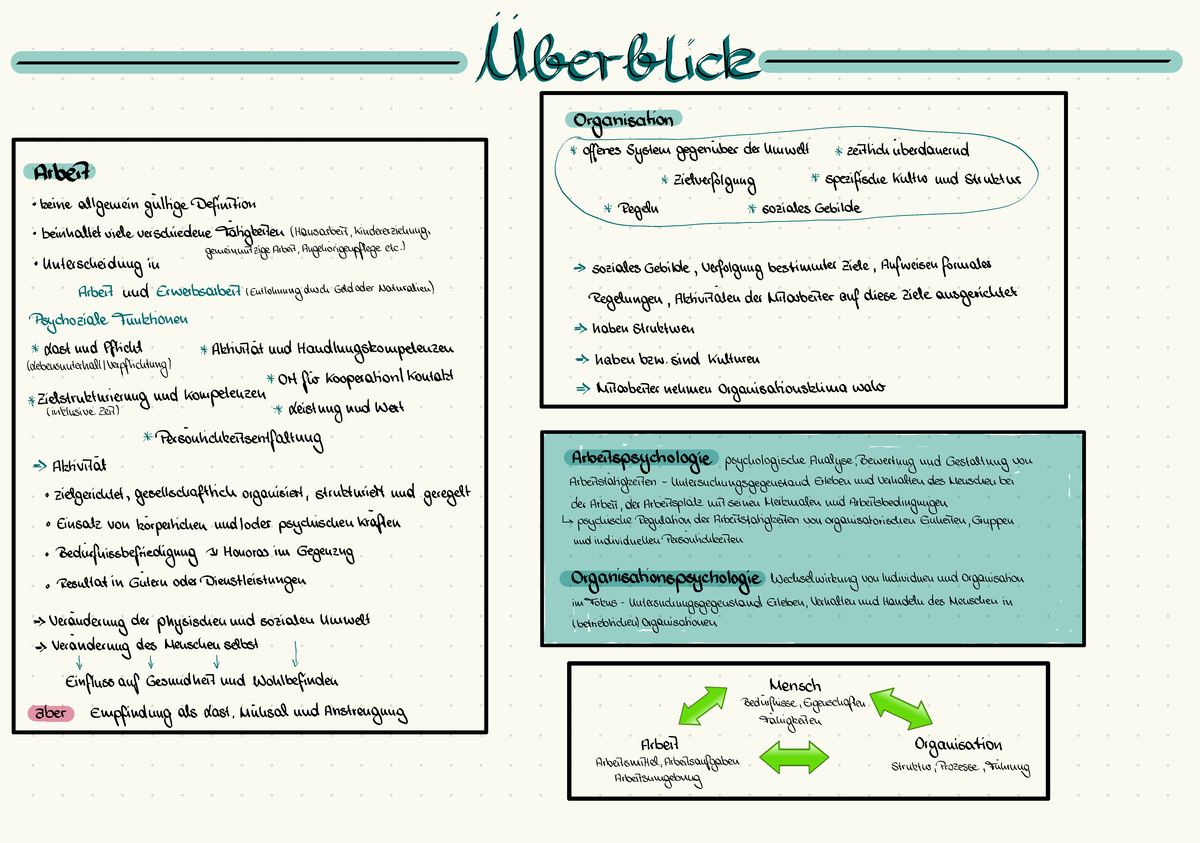 Überblick
Arbeit
• keine allgemein gültige Definition
• beinhaltet viele verschiedene Tätigkeiten (Hausarbeit, Kindererziehung,
gemeinnützige Arbeit, Angehörigenpflege etc.)
• Unterscheidung in
Arbeit und Erwerbsarbeit (Entlohnung durch Geld oder Naturalien)
Psychoziale Funktionen
* Last und Pflicht
(Lebensunterhalt/Verpflichtung)
* Aktivität und Handlungskompetenzen
* Ort für Kooperation/Kontakt
* Zielstrukturierung und Kompetenzen
(inklusive Zeit)
* Leistung und Wert
* Persönlichkeitsentfaltung
⇒ Aktivität
• zielgerichtet, gesellschaftlich organisiert, strukturiert und geregelt
• Einsatz von körperlichen und/oder psychischen Kräften
• Bedürfnissbefriedigung Honoras im Gegenzug
• Resultat in Gütern oder Dienstleistungen
⇒ Veränderung der physischen und sozialen Umwelt
⇒ Veränderung des Menschen selbst
Einfluss auf Gesundheit und Wohlbefinden
aber Empfindung als Last, Mühsal und Anstrengung
Organisation
* offenes System gegenüber der Umwelt * zeitlich überdauernd
* Zielverfolgung * spezifische Kultur und Struktur
* Regeln * soziales Gebilde
⇒ soziales Gebilde, Verfolgung bestimmter Ziele, Aufweisen formales
Regelungen, Aktivitäten der Mitarbeiter auf diese Ziele ausgerichtet
⇒ haben Strukturen
⇒ haben bzw. sind Kulturen
⇒ Mitarbeiter nehmen Organisationsklima wahr
Arbeitspsychologie psychologische Analyse, Bewertung und Gestaltung von
Arbeitstätigkeiten - Untersuchungsgegenstand Erleben und Verhalten des Menschen bei
der Arbeit, der Arbeitsplatz mit seinen Merkmalen und Arbeitsbedingungen
↳ psychische Regulation der Arbeitstätigkeiten von organisatorischen Einheiten, Gruppen
und individuellen Persönlichkeiten
Organisationspsychologie Wechselwirkung von Individuen und Organisation
im Fokus - Untersuchungsgegenstand Erleben, Verhalten und Handeln des Menschen in
(betrieblichen) Organisationen
Mensch
Bedürfnisse, Eigenschaften
Fähigkeiten
Arbeit
Arbeitsmittel, Arbeitsaufgaben
Arbeitsumgebung
Organisation
Struktur, Prozesse, Führung